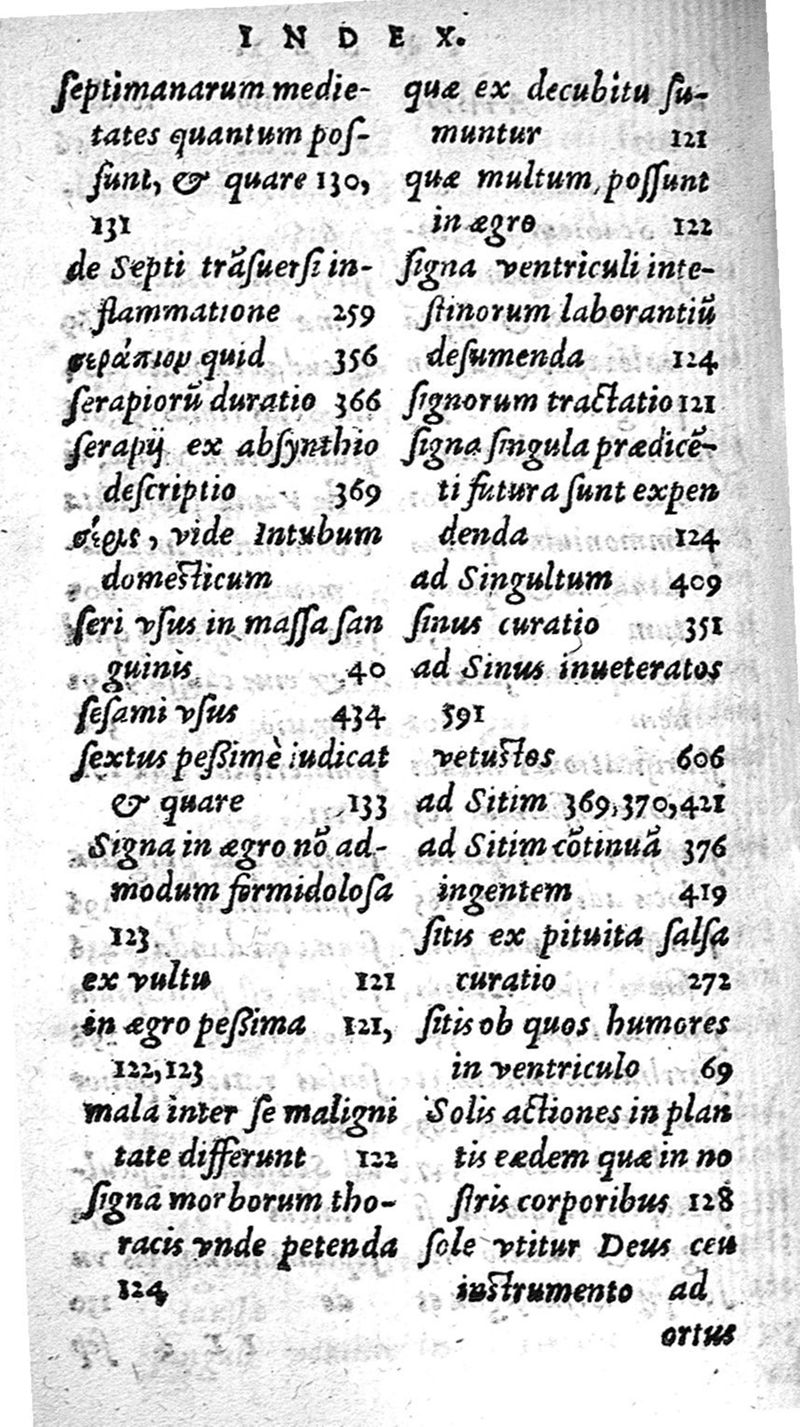 INDEX.
ſeptimanarum medie-
tates quantum poſ-
ſunt, & quare 130,
131
de Septi trãſuerſi in-
flammatione 259
σεράπιον quid 356
ſerapiorũ duratio 366
ſerapij ex abſynthio
deſcriptio 369
σέρις, vide Intubum
domeſticum
ſeri vſus in maſſa ſan
guinis 40
ſeſami vſus 434
ſextus peſsimè iudicat
& quare 133
Signa in ægro nõ ad-
modum formidoloſa
123
ex vultu 121
in ægro peſsima 121,
122,123
mala inter ſe maligni
tate differunt 122
ſigna morborum tho-
racis vnde petenda
124
quæ ex decubitu ſu-
muntur 121
quæ multum poſſunt
in ægro 122
ſigna ventriculi inte-
ſtinorum laborantiũ
deſumenda 124
ſignorum tractatio 121
ſigna ſingula prædicẽ-
ti futura ſunt expen
denda 124
ad Singultum 409
ſinus curatio 351
ad Sinus inueteratos
591
vetuſtos 606
ad Sitim 369,370,421
ad Sitim cõtinuã 376
ingentem 419
ſitis ex pituita ſalſa
curatio 272
ſitis ob quos humores
in ventriculo 69
Solis actiones in plan
tis eædem quæ in no
ſtris corporibus 128
ſole vtitur Deus ceu
inſtrumento ad
ortus